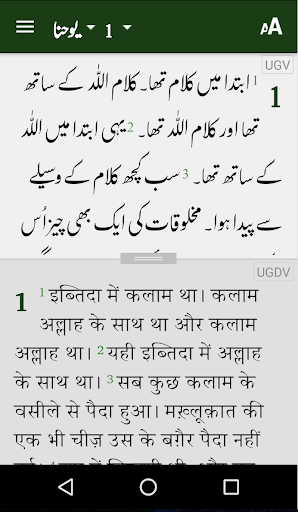 یوحنا 1
UGV
1 ¹ابتدا میں کلام تھا۔ کلام اللہ کے ساتھ
تھا اور کلام اللہ تھا۔ ²یہی ابتدا میں اللہ
کے ساتھ تھا۔ ³سب کچھ کلام کے وسیلے
سے پیدا ہوا۔ مخلوقات کی ایک بھی چیز اُس
UGDV
1 ¹इब्तिदा में कलाम था। कलाम
अल्लाह के साथ था और कलाम
अल्लाह था। ²यही इब्तिदा में अल्लाह
के साथ था। ³सब कुछ कलाम के
वसीले से पैदा हुआ। मख़्लूक़ात की
एक भी चीज़ उस के बग़ैर पैदा नहीं